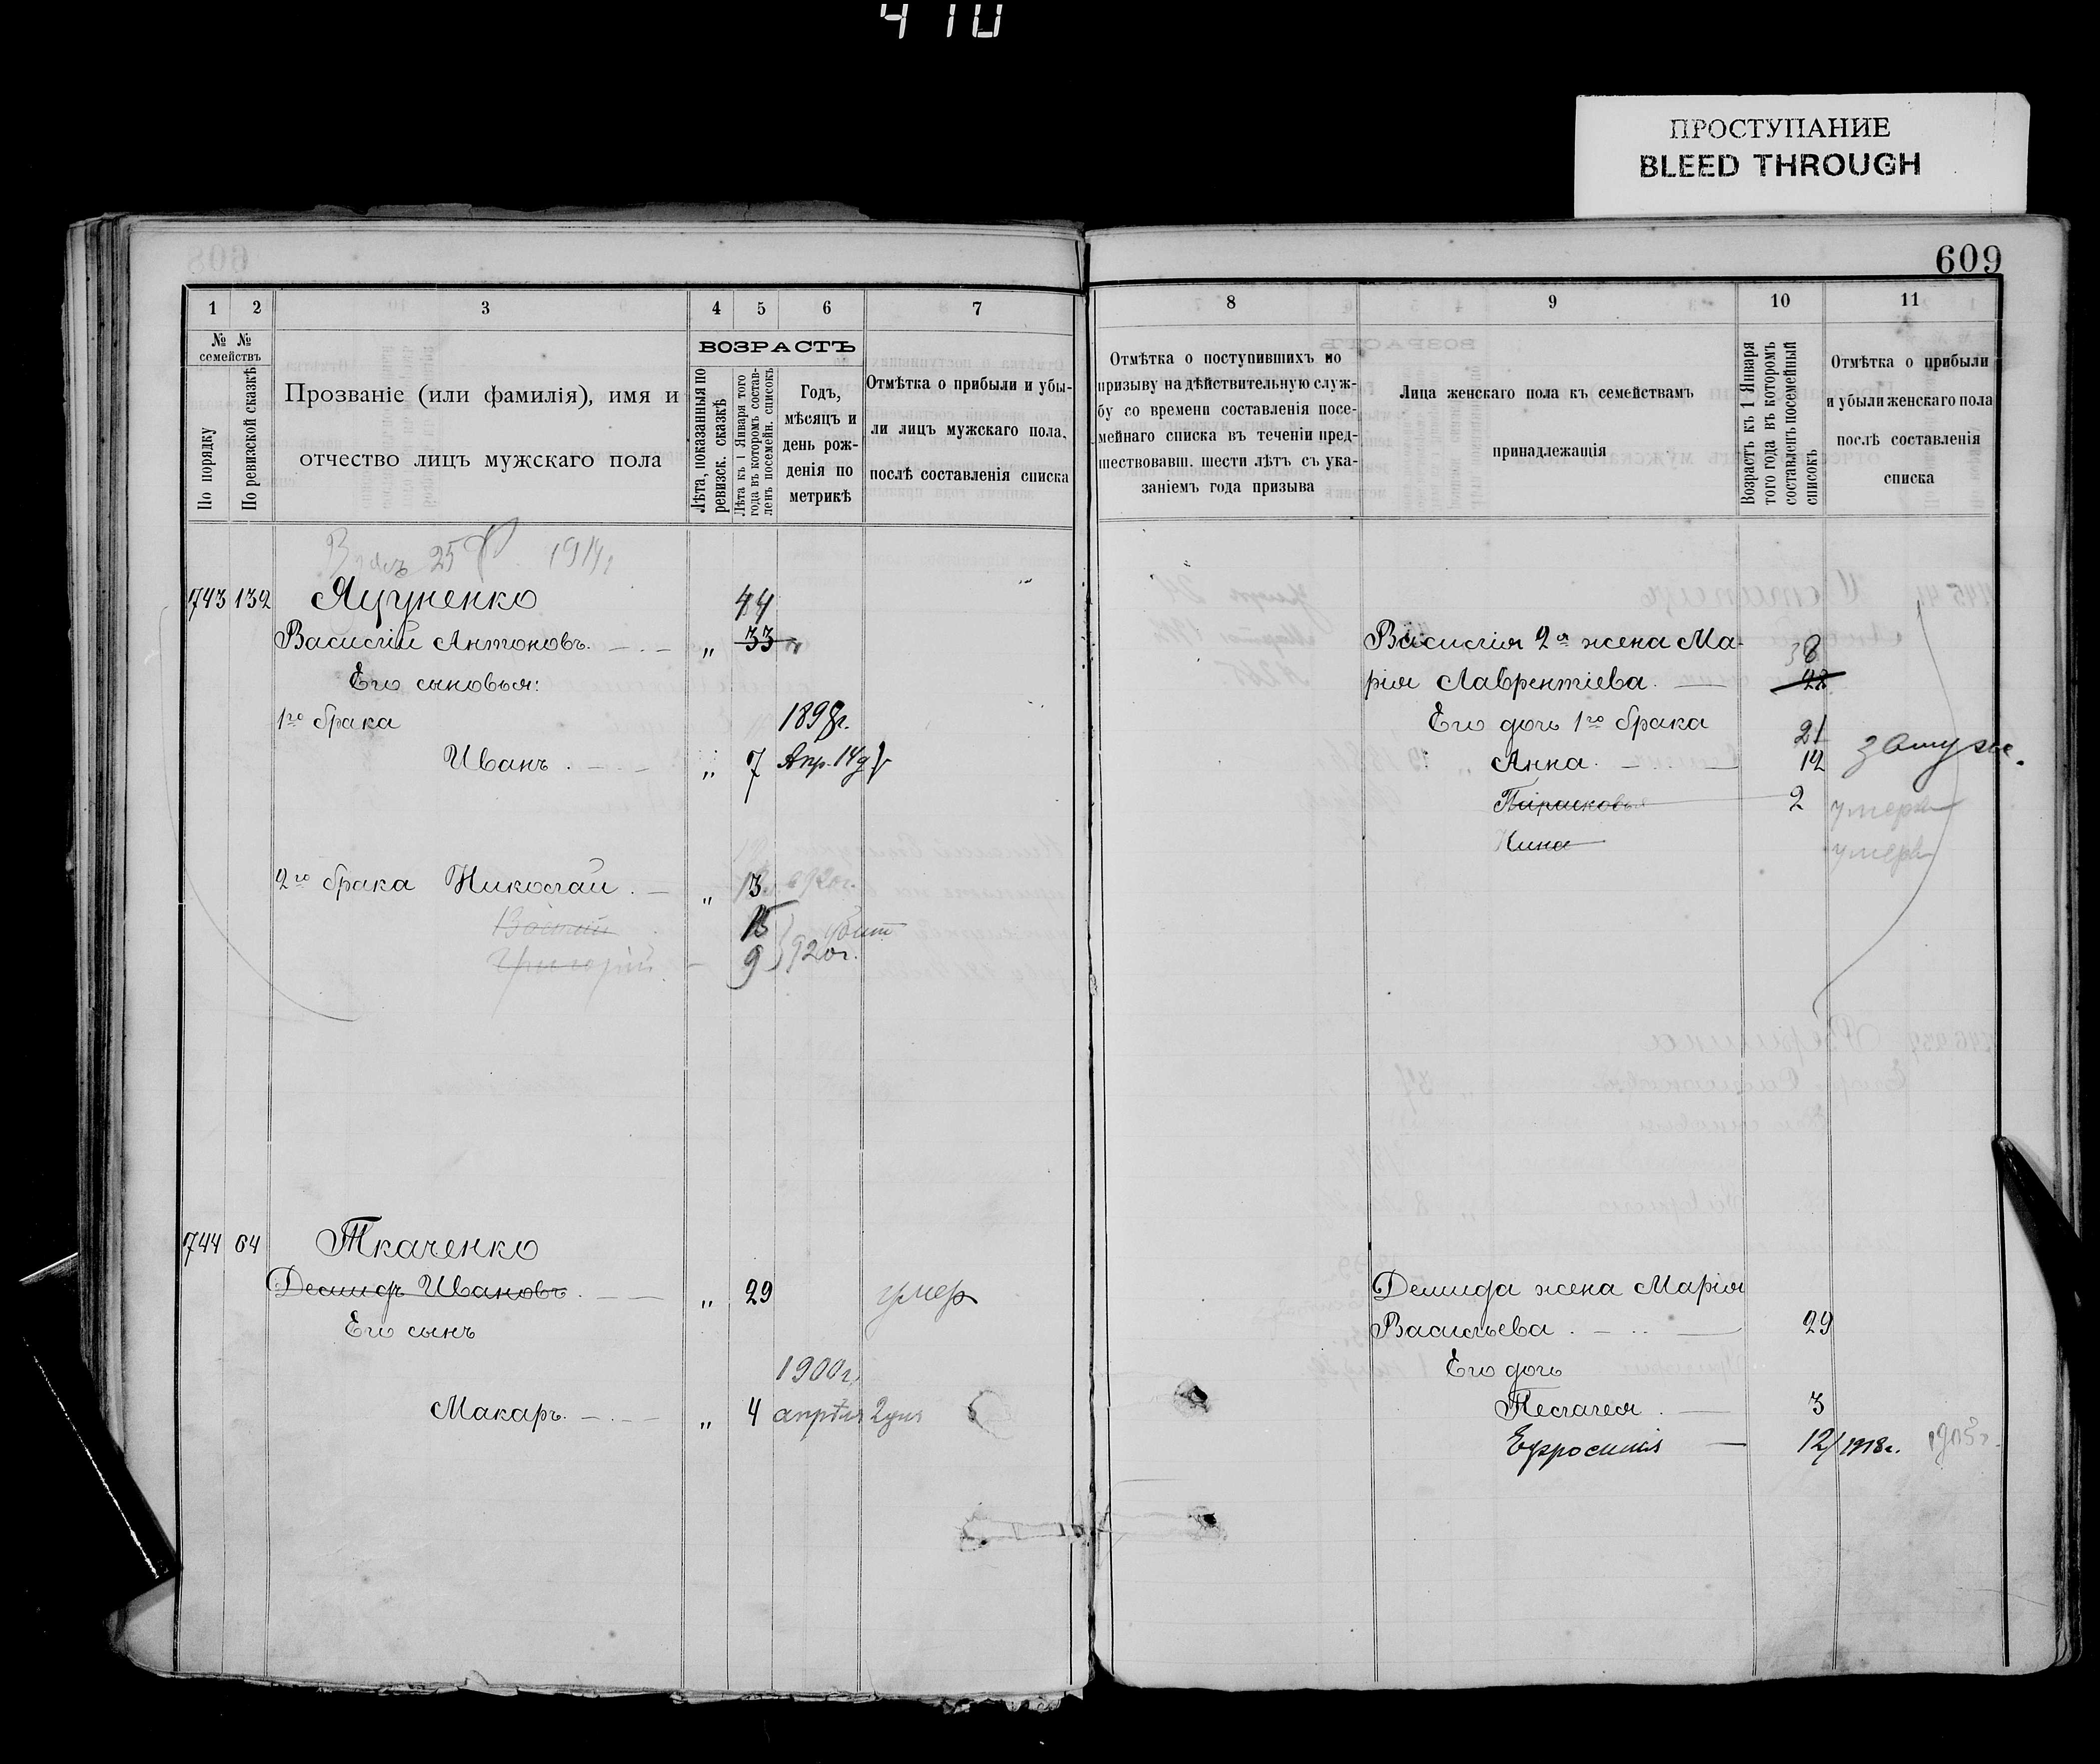 410
ПРОСТУПАНИЕ
BLEED THROUGH
609
1 2 3 4 5 6 7
№ № семействъ
По порядку
По ревизской сказкѣ
Прозваніе (или фамилія), имя и
отчество лицъ мужскаго пола
ВОЗРАСТЪ
Лѣта, показанныя по
ревизск. сказкѣ
Лѣта къ 1 Января того
года въ которомъ состав-
ленъ посемейн. списокъ
Годъ,
мѣсяцъ и
день рож-
денія по
метрикѣ
Отмѣтка о прибыли и убы-
ли лицъ мужскаго пола,
послѣ составленія списка
25 1914г
743 132
44
Василій Антоновъ. „ 33
Его сыновья:
1го брака 1898г.
Иванъ. „ 7 Апр. 14д
2го брака Николай. „ 3 920г.
15 убит
Григорій 9 920г.
744 64 Ткаченко
Демидъ Ивановъ. „ 29 умер
Его сынъ
1900г.
Макаръ. „ 4 апрѣля 2дня
8 9 10 11
Отмѣтка о поступившихъ по
призыву на дѣйствительную служ-
бу со времени составленія посе-
мейнаго списка въ теченіи пред-
шествовавш. шести лѣтъ съ ука-
заніемъ года призыва
Лица женскаго пола къ семействамъ
принадлежащія
Возрасть къ 1 Января
того года въ которомъ
составленъ посемейный
списокъ
Отмѣтка о прибыли
и убыли женскаго пола
послѣ составленія
списка
Василія 2я жена Ма- 38
рія Лаврентіева. 22
Его дочь 1го брака 21
Анна. 12 замуже.
Парасковья 2 умерла
Нина умерла
Демида жена Марія
Васильева. 29
Его дочь
Пелагея. 3
Ефросинія 12/1918г. 1905г.